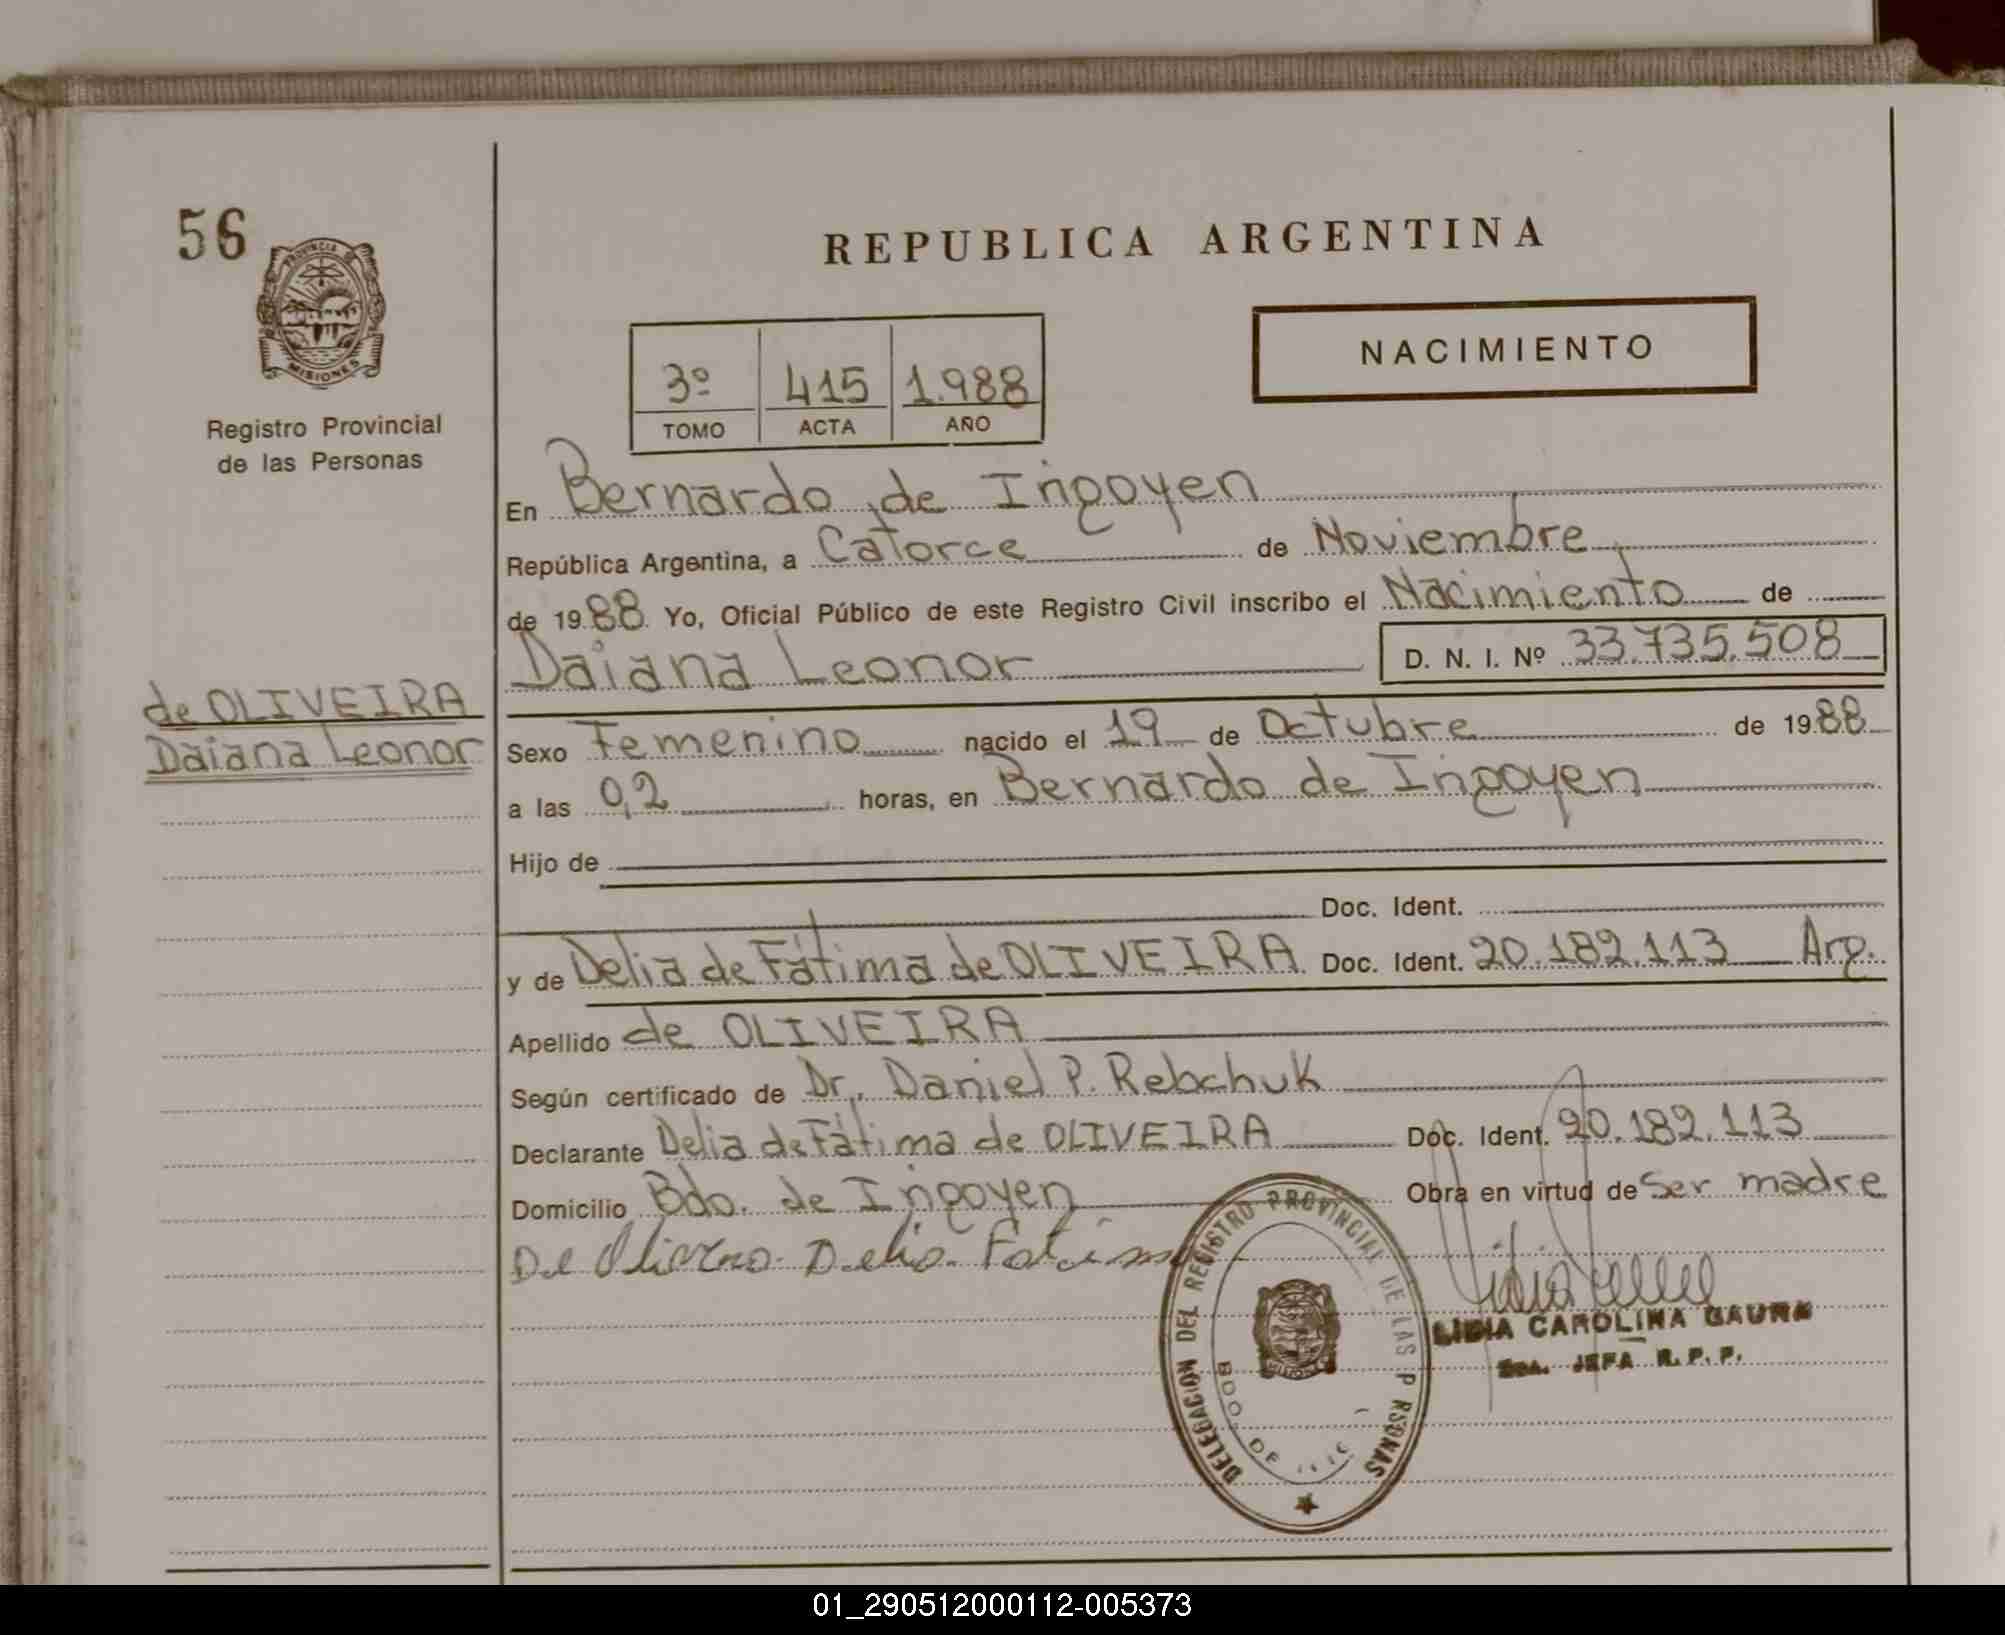 56
PROVINCIA
MISIONES
Registro Provincial
de las Personas
REPUBLICA ARGENTINA
NACIMIENTO
3º 415 1.988
TOMO ACTA AÑO
En Bernardo de Irigoyen
República Argentina, a Catorce de Noviembre
de 1988 Yo, Oficial Público de este Registro Civil inscribo el Nacimiento de
Daiana Leonor D. N. I. Nº 33.735.508
de OLIVEIRA
Daiana Leonor
Sexo Femenino nacido el 19 de Octubre de 1988
a las 0,2 horas, en Bernardo de Irigoyen
Hijo de
Doc. Ident.
y de Delia de Fátima de OLIVEIRA Doc. Ident. 20.182.113 Arg.
Apellido de OLIVEIRA
Según certificado de Dr. Daniel P. Rebchuk
Declarante Delia de Fátima de OLIVEIRA Doc. Ident. 20.182.113
Domicilio Bdo. de Irigoyen Obra en virtud de Ser madre
DELEGACION DEL REGISTRO PROVINCIAL DE LAS P RSONAS
BDO. DE
LIDIA CAROLINA GAUNA
JEFA R. P. P.
01_290512000112-005373